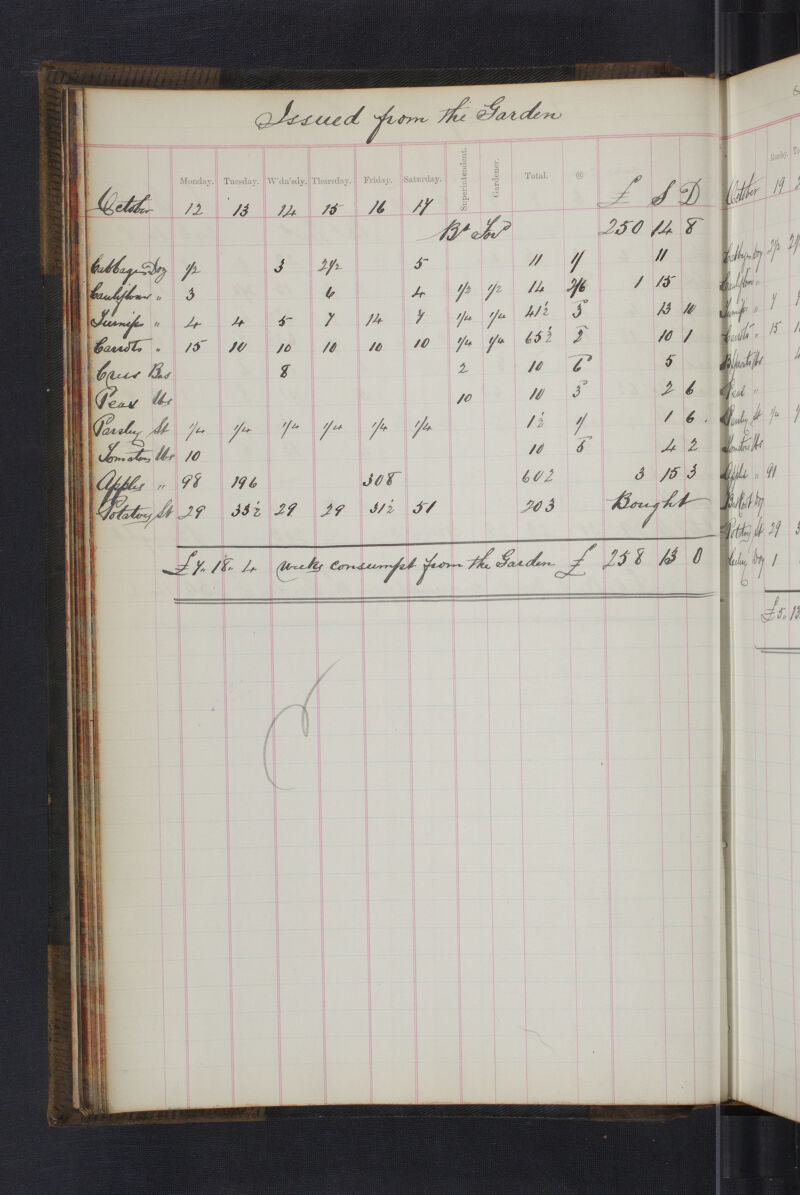 Issued from the Garden
Monday. Tuesday. W'dn'sdy. Thursday. Friday. Saturday. Superintendent. Gardener. Total. @ £ S D
October 12 13 14 15 16 17
Bt Ford 250 14 8
Cabbages Doz 1/2 3 2 1/2 5 11 1/ 11
Cauliflower " 3 6 4 1/2 1/2 14 2/6 1 15
Turnips " 4 4 5 7 14 7 1/4 1/4 41 1/2 3 13 10
Carrots " 15 10 10 10 10 10 1/4 1/4 65 1/2 2 10 1
Cress Bns 8 2 10 6 5
Peas lbs 10 10 3 2 6
Parsley St 1/4 1/4 1/4 1/4 1/4 1/4 1 1/2 1/ 1 6
Tomatoes lbs 10 10 5 4 2
Apples " 98 196 308 602 3 15 3
Potatoes St 29 33 1/2 29 29 31 1/2 51 203 Bought
£7. 18. 4 weeks consumpt from the Garden £ 258 13 0
Monday.
October 19